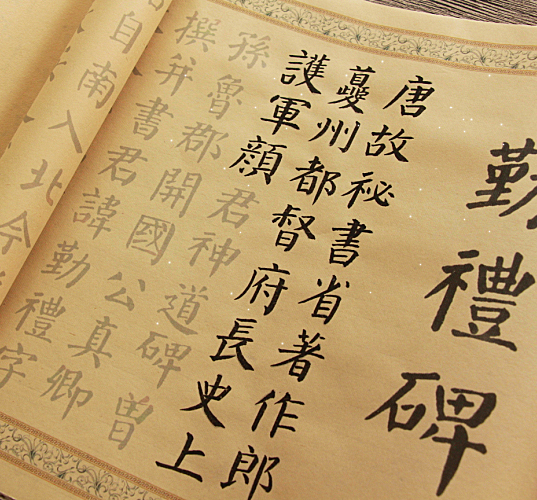 勤禮碑
唐故祕書省著作郎
夔州都督府長史上
護軍顔君神道碑曾
孫魯郡開國公真卿
撰并書君諱勤禮字
自南入北今